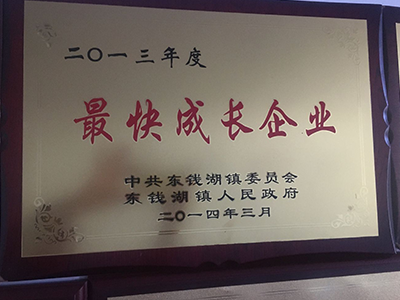 二〇一三年度
最快成长企业
中共东钱湖镇委员会
东钱湖镇人民政府
二〇一四年三月